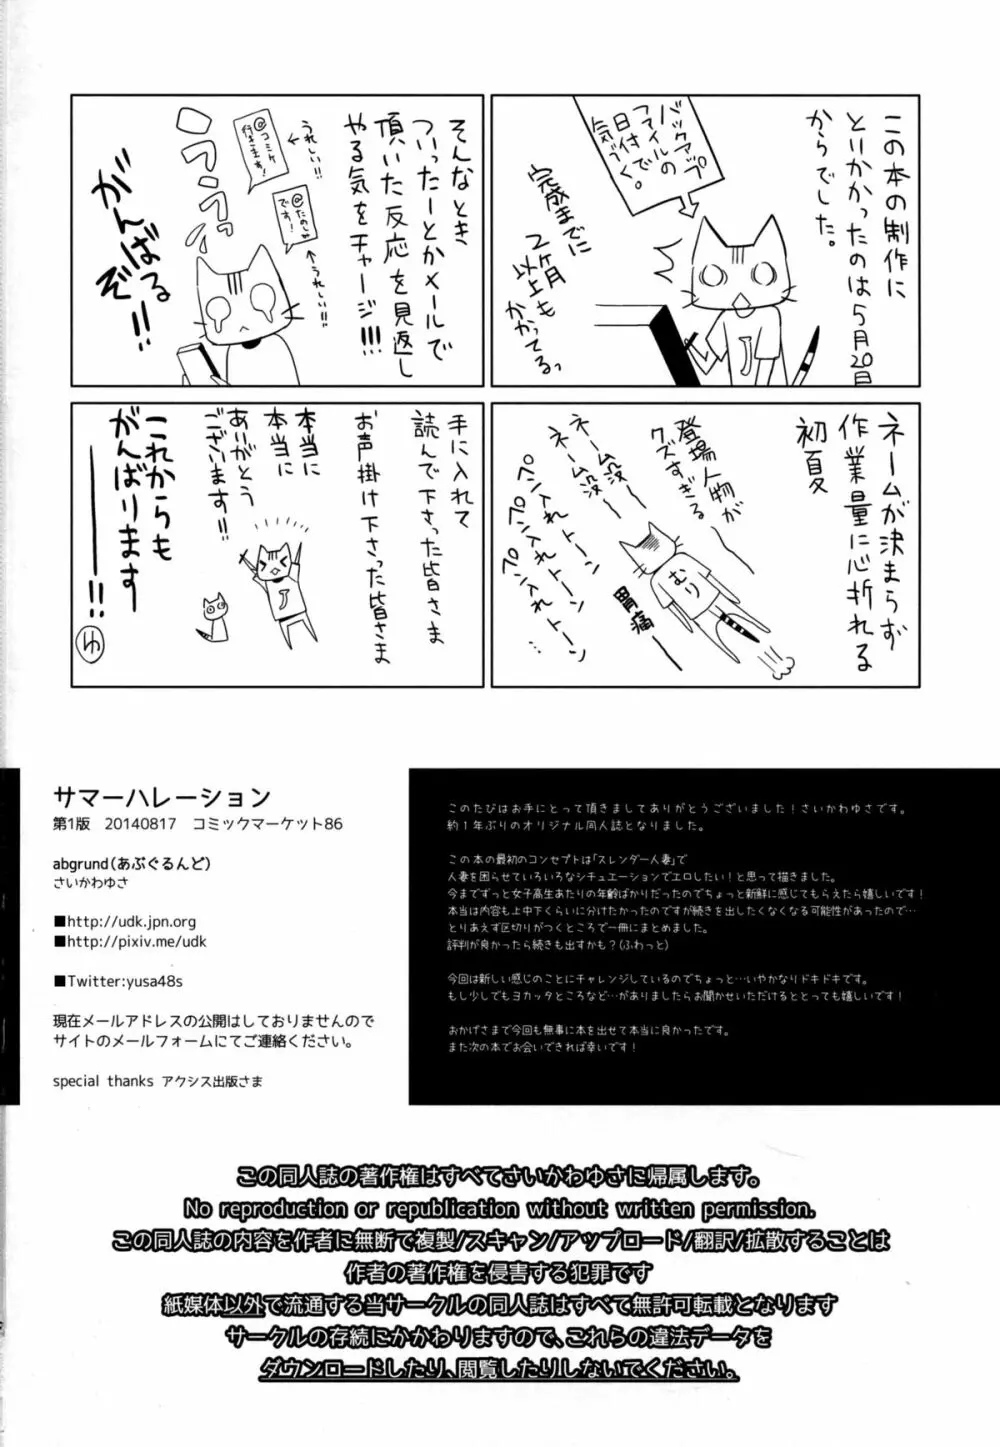 この本の制作に
とりかかったのは5月20日
からでした。
バックアップ
ファイルの
日付で
気づく。
完成までに
2ヶ月
以上も
かかってる。
J
そんなとき
ついったーとかメールで
頂いた反応を見返し
やる気をチャージ!!!
うれしい!!
@コミケ
行きます!
@たのしみ
です!
うれしい!!
がんばる
ぞ!!
ネームが決まらず
作業量に心折れる
初夏
登場人物が
クズすぎる
ネーム没〜
ネーム没〜
ペン入れトーン
ペンペン入れトーン
ペン入れトーン…
むり
胃痛
手に入れて
読んで下さった皆さま
お声掛け下さった皆さま
本当に
本当に
ありがとう
ございます!!
J
これからも
がんばります
――!!
ゆ
サマーハレーション
第1版 20140817 コミックマーケット86
abgrund(あぶぐるんど)
さいかわゆさ
■http://udk.jpn.org
■http://pixiv.me/udk
■Twitter:yusa48s
現在メールアドレスの公開はしておりませんので
サイトのメールフォームにてご連絡ください。
special thanks アクシス出版さま
このたびはお手にとって頂きましてありがとうございました!さいかわゆさです。
約1年ぶりのオリジナル同人誌となりました。
この本の最初のコンセプトは「スレンダー人妻」で
人妻を困らせていろいろなシチュエーションでエロしたい!と思って描きました。
今までずっと女子高生あたりの年齢ばかりだったのでちょっと新鮮に感じてもらえたら嬉しいです!
本当は内容も上中下くらいに分けたかったのですが続きを出したくなくなる可能性があったので…
とりあえず区切りがつくところで一冊にまとめました。
評判が良かったら続きも出すかも?(ふわっと)
今回は新しい感じのことにチャレンジしているのでちょっと…いやかなりドキドキです。
もし少しでもヨカッタところなど…がありましたらお聞かせいただけるととっても嬉しいです!
おかげさまで今回も無事に本を出せて本当に良かったです。
また次の本でお会いできれば幸いです!
この同人誌の著作権はすべてさいかわゆさに帰属します。
No reproduction or republication without written permission.
この同人誌の内容を作者に無断で複製/スキャン/アップロード/翻訳/拡散することは
作者の著作権を侵害する犯罪です
紙媒体以外で流通する当サークルの同人誌はすべて無許可転載となります
サークルの存続にかかわりますので、これらの違法データを
ダウンロードしたり、閲覧したりしないでください。